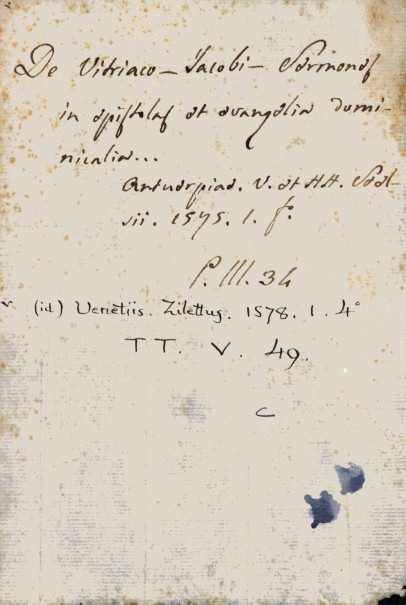 De Vitriaco - Jacobi - Sermones
in epistolas et evangelia domi-
nicalia...
Antuerpiae. V. et HH. Stel-
sii. 1575. 1. fº.
P. III. 34
(id) Venetiis. Zilettus. 1578. 1. 4º
TT. V. 49.
C